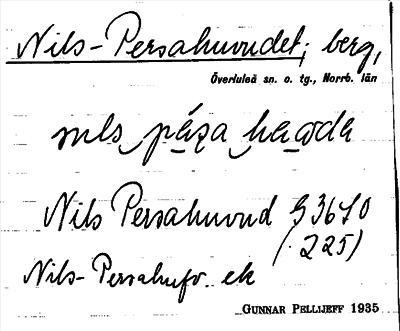 Nils-Persahuvudet; berg,
Överluleå sn. o. tg., Norrb. län
Nils Persahuvud G 36 1 0
(225)
Nils-Persahufv. ek
GUNNAR PELLIJEFF 1935